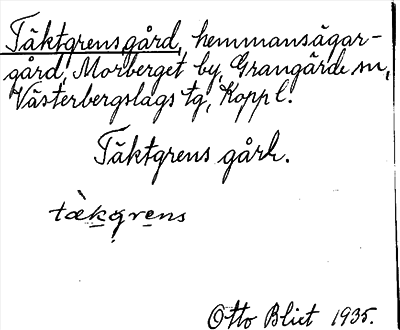 Täktgrensgård, hemmansägar-
gård, Morberget by, Grangärde sn,
Västerbergslags tg, Kopp l.
Täktgrens gård.
tàkgrens
Otto Blixt 1935.